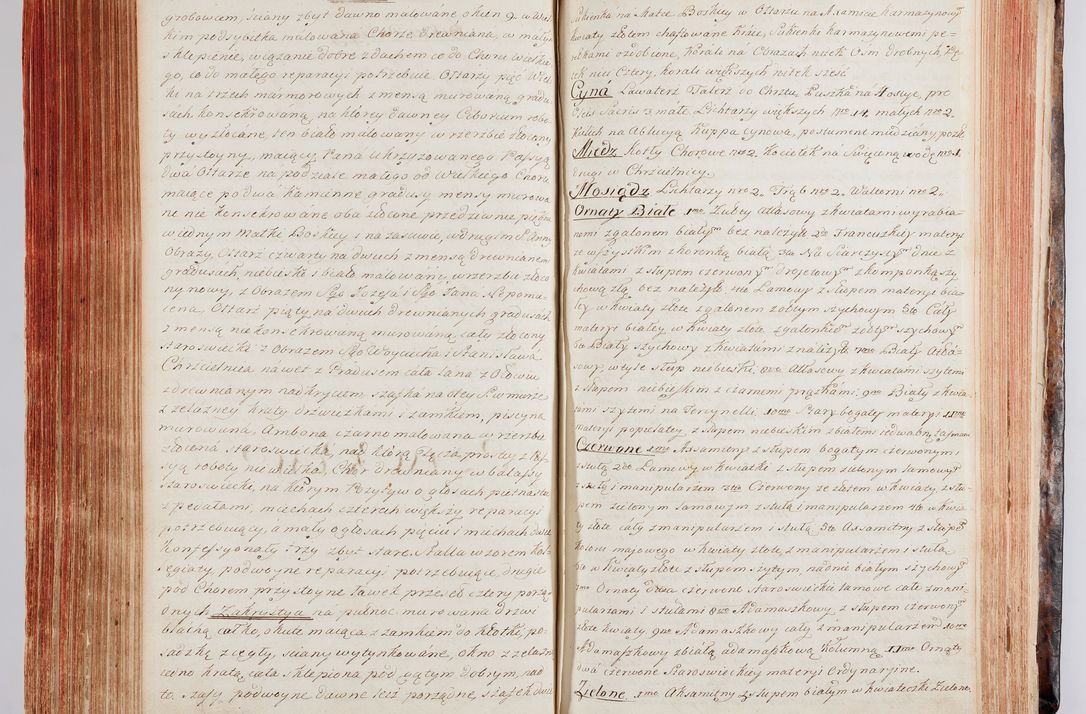 grobowcem, sciany zbyt dawno malowane okien 9. w wiel
kim podsybitka malowana Chorze drewniana, w małym
sklepienie, wiązanie dobre z dachem co do Choru wielkie
go, co do małego reparacyi potrzebuie. Ołtarzy pięć Wiel
ki na trzech marmorowych z mensą murowaną gradu
sach konsekrowaną, na ktorey dawney Ciborium robo
ty wyzłacane, ten biało malowany w rzezbie złocony
przystoyny, maiący Pana Ukrzyzowanego Passyą
dwa Ołtarze na podziale małego od Wielkiego Choru
maiące po dwa kamienne gradusy mensy murowa
ne nie konsekrowane oba złocone przedziwnie piękne
w iednym Matki Boskiey i na zasuwie, w drugim S. Anny
Obrazy, Ołtarz czwarty na dwuch z mensą drewnianemi
gradusach, niebiesko i biało malowany, w rzezbie złoco
ny nowy, z Obrazem Sgo Jozefa i Sgo Jana Nepomu
cena, Ołtarz piąty na dwuch drewnianych gradusach
z mensą niekonsekrowaną murowaną cały złocony
staroswiecki z Obrazem Sgo Woyciecha i Stanisława
Chrzcielnica nawet z Gradusem cała lana z Ołowiu
z drewnianym nadkryciem, szafka na Oley S. w murze
z zelazney kraty drzwiczkami i zamkiem, piscyna
murowana, Ambona czarno malowana w rzezbie
złocona staroswiecka, nad którą
syą roboty niewielka Chor drewniany w balassy
staroswiecki, na ktorym Pozytyw o głosach pietnastu
z pedałami, miechach czterech większy reparacyi
potrzebuiący, a mały o głosach pięciu i miechach dwu
Konfessyonały trzy zbyt stare. Stalla wzorem Kol
legiaty, podwoyne reparacyi potrzebuiące, drugie
pod Chorem przystoyne ławek przeszło cztery porzą
dnych. Zakrystya na pułnoc murowana drzwi
blachą całko, okute maiąca z zamkiem do Kłotki, po
sadzkę z cegły, sciany wytynkowane, okno z zelaz
ną kratą cała sklepiona pod gątym dobrym, nad
to. szafy podwoyne dawne lecz porządne, szafek dwie
Sukienka na Matce Boskiey w Ołtarzu na Axamicie karmazynowym
kwiaty złotem haftowane Xięży, Sukienki karmazynowemi pe
rełkami ozdobione, Korali na Obrazach nitek O.m drobnych, Pe
rełek nici Cztery, korali większych nitek sześć
Cyna Lawaterz Talerz do Chrztu, Puszka na Hostye, pro
Oleis Sacris 3 małe Lichtarzy większych nro 14. małych nro 2.
Kielich na Ablucyą Kuppa cynowa, postument miedziany, pozł.
Miedz Kotły Chorowe nro 2. Kociołek na Swięconą wodę nro 1.
drugi w Chrzcielnicy.
Mosiądz Lichtarzy nro 2. Trąb nro 2. Walterni nro 2.
Ornaty Białe 1mo Lubey Attłasowy z kwiatami wyrabia
nemi z galonem białym bez należyt. 2do Francuzkiey matery
ze wszystkim z koronką białą 3tio Na Siarczystym dnie z
kwiatami z słupem czerwonym drojetowym z komponką szy
chową złą, bez należyto. 4to Lamowy z słupem materyi bia
łey w kwiaty złote z galonem żołtym szychowym 5to Cały
materyi białey w kwiaty złote z galonkiem żołtym szychowym
6to Biały szychowy z kwiatami z należyto. 7mo Biały Atłas
sowy w tyle słup niebieski. 8vo Attłasowy z kwiatami szytemi
z słupem niebieskim z czarnemi prązkami, 9no Biały z kwia
tami szytemi na Tercynelli. 10mo Stary bogaty materyi 11mo
materyi popielatey z słupem niebieskim z białemi iedwabnemi
Czerwone 1mo Axamitny z słupem bogatym czerwonym i
stułą 2do Lamowy w kwiatki z słupem zielonym lamowym
z stułą i manipularzem 3tio Czerwony ze złotem w kwiaty z słu
pem zielonym lamowym z stułą i manipularzem 4to w kwia
ty złote cały z manipularzem i stułą 5to Axsamitny z słupem
koloru majowego w kwiaty złote z manipularzem i stułą
6to w Kwiaty złote z słupem szytym na dnie białym szychowym
7mo Ornaty Dwa czerwone Staroswieckie lamowe całe z mani
pularzami i stułami 8vo Adamaszkowy z słupem czerwonym
złote kwiaty, 9no Adamaszkowy cały z manipularzem 10mo
Adamaszkowy z białą adamaszkową kolumną 11mo Ornaty
dwa czerwone Staroswieckiey materyi Ordynaryine.
Zielone. 1mo Aksamitny z słupem białym w kwiateczki Zielone.